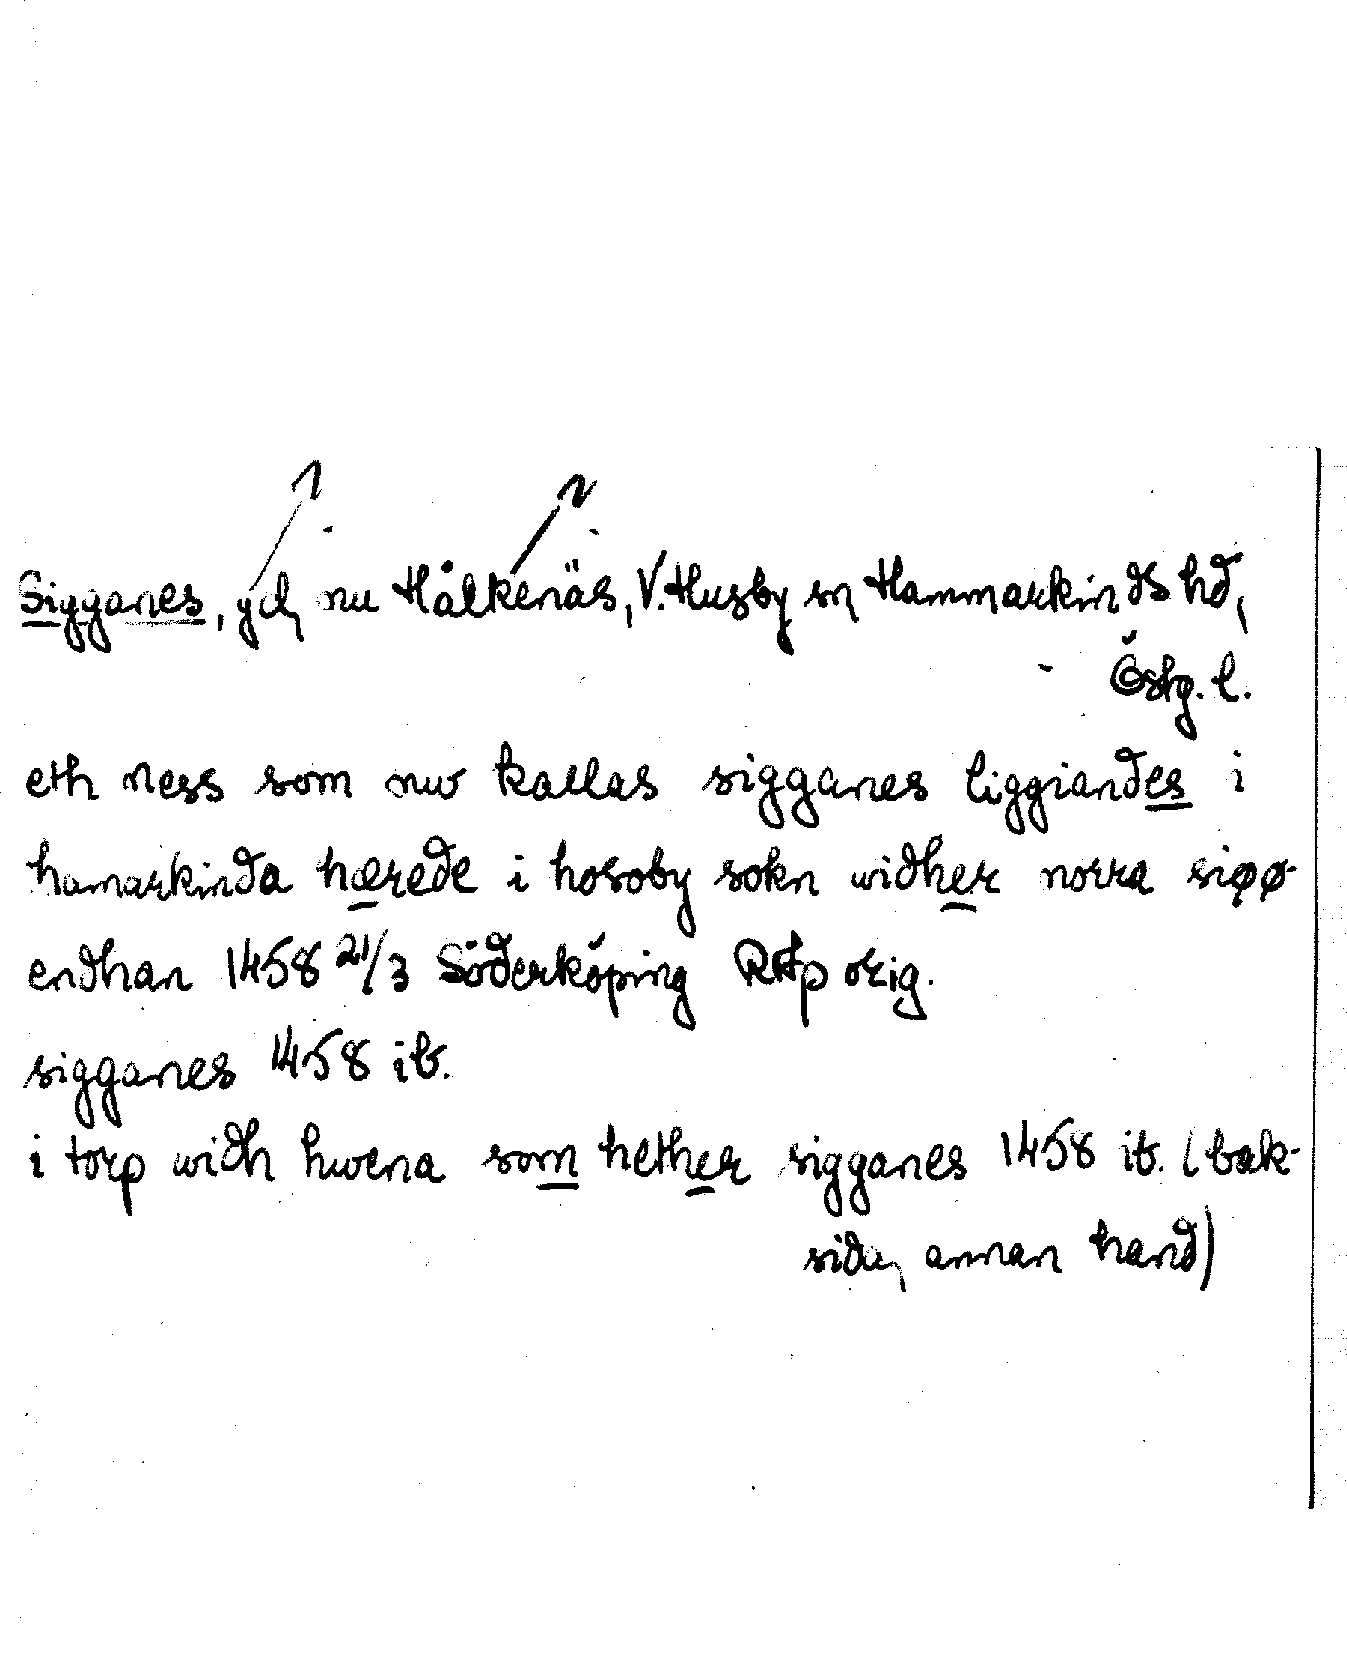 Sigganes, gd, nu Hålkenäs, V. Husby sn, Hammarkinds hd,
Östg. l.
eth ness som nw kallas sigganes liggiandes i
hamarkinda hærede i hosoby sokn widher norra siøø-
endhan 1458 21/3 Söderköping RAp orig.
sigganes 1458 ib.
i torp widh hwena som hether sigganes 1458 ib. (bak-
sida, annan hand)